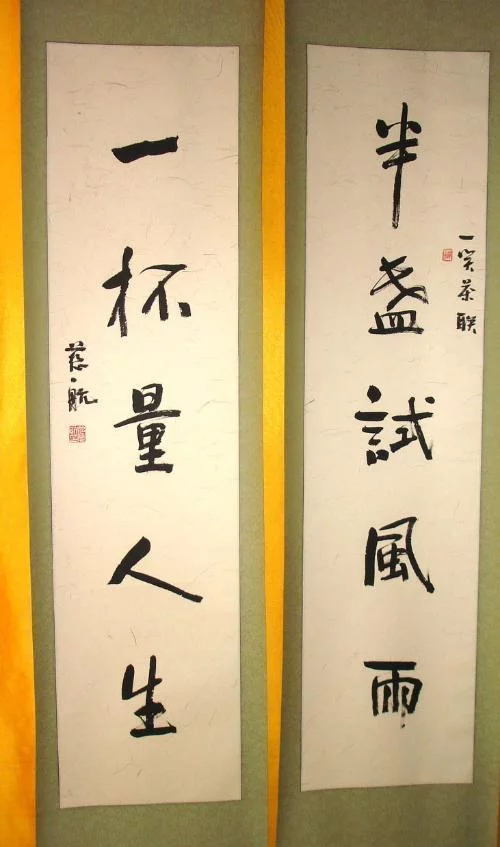 半盏試風雨
一笑茶联
一杯量人生
慈航